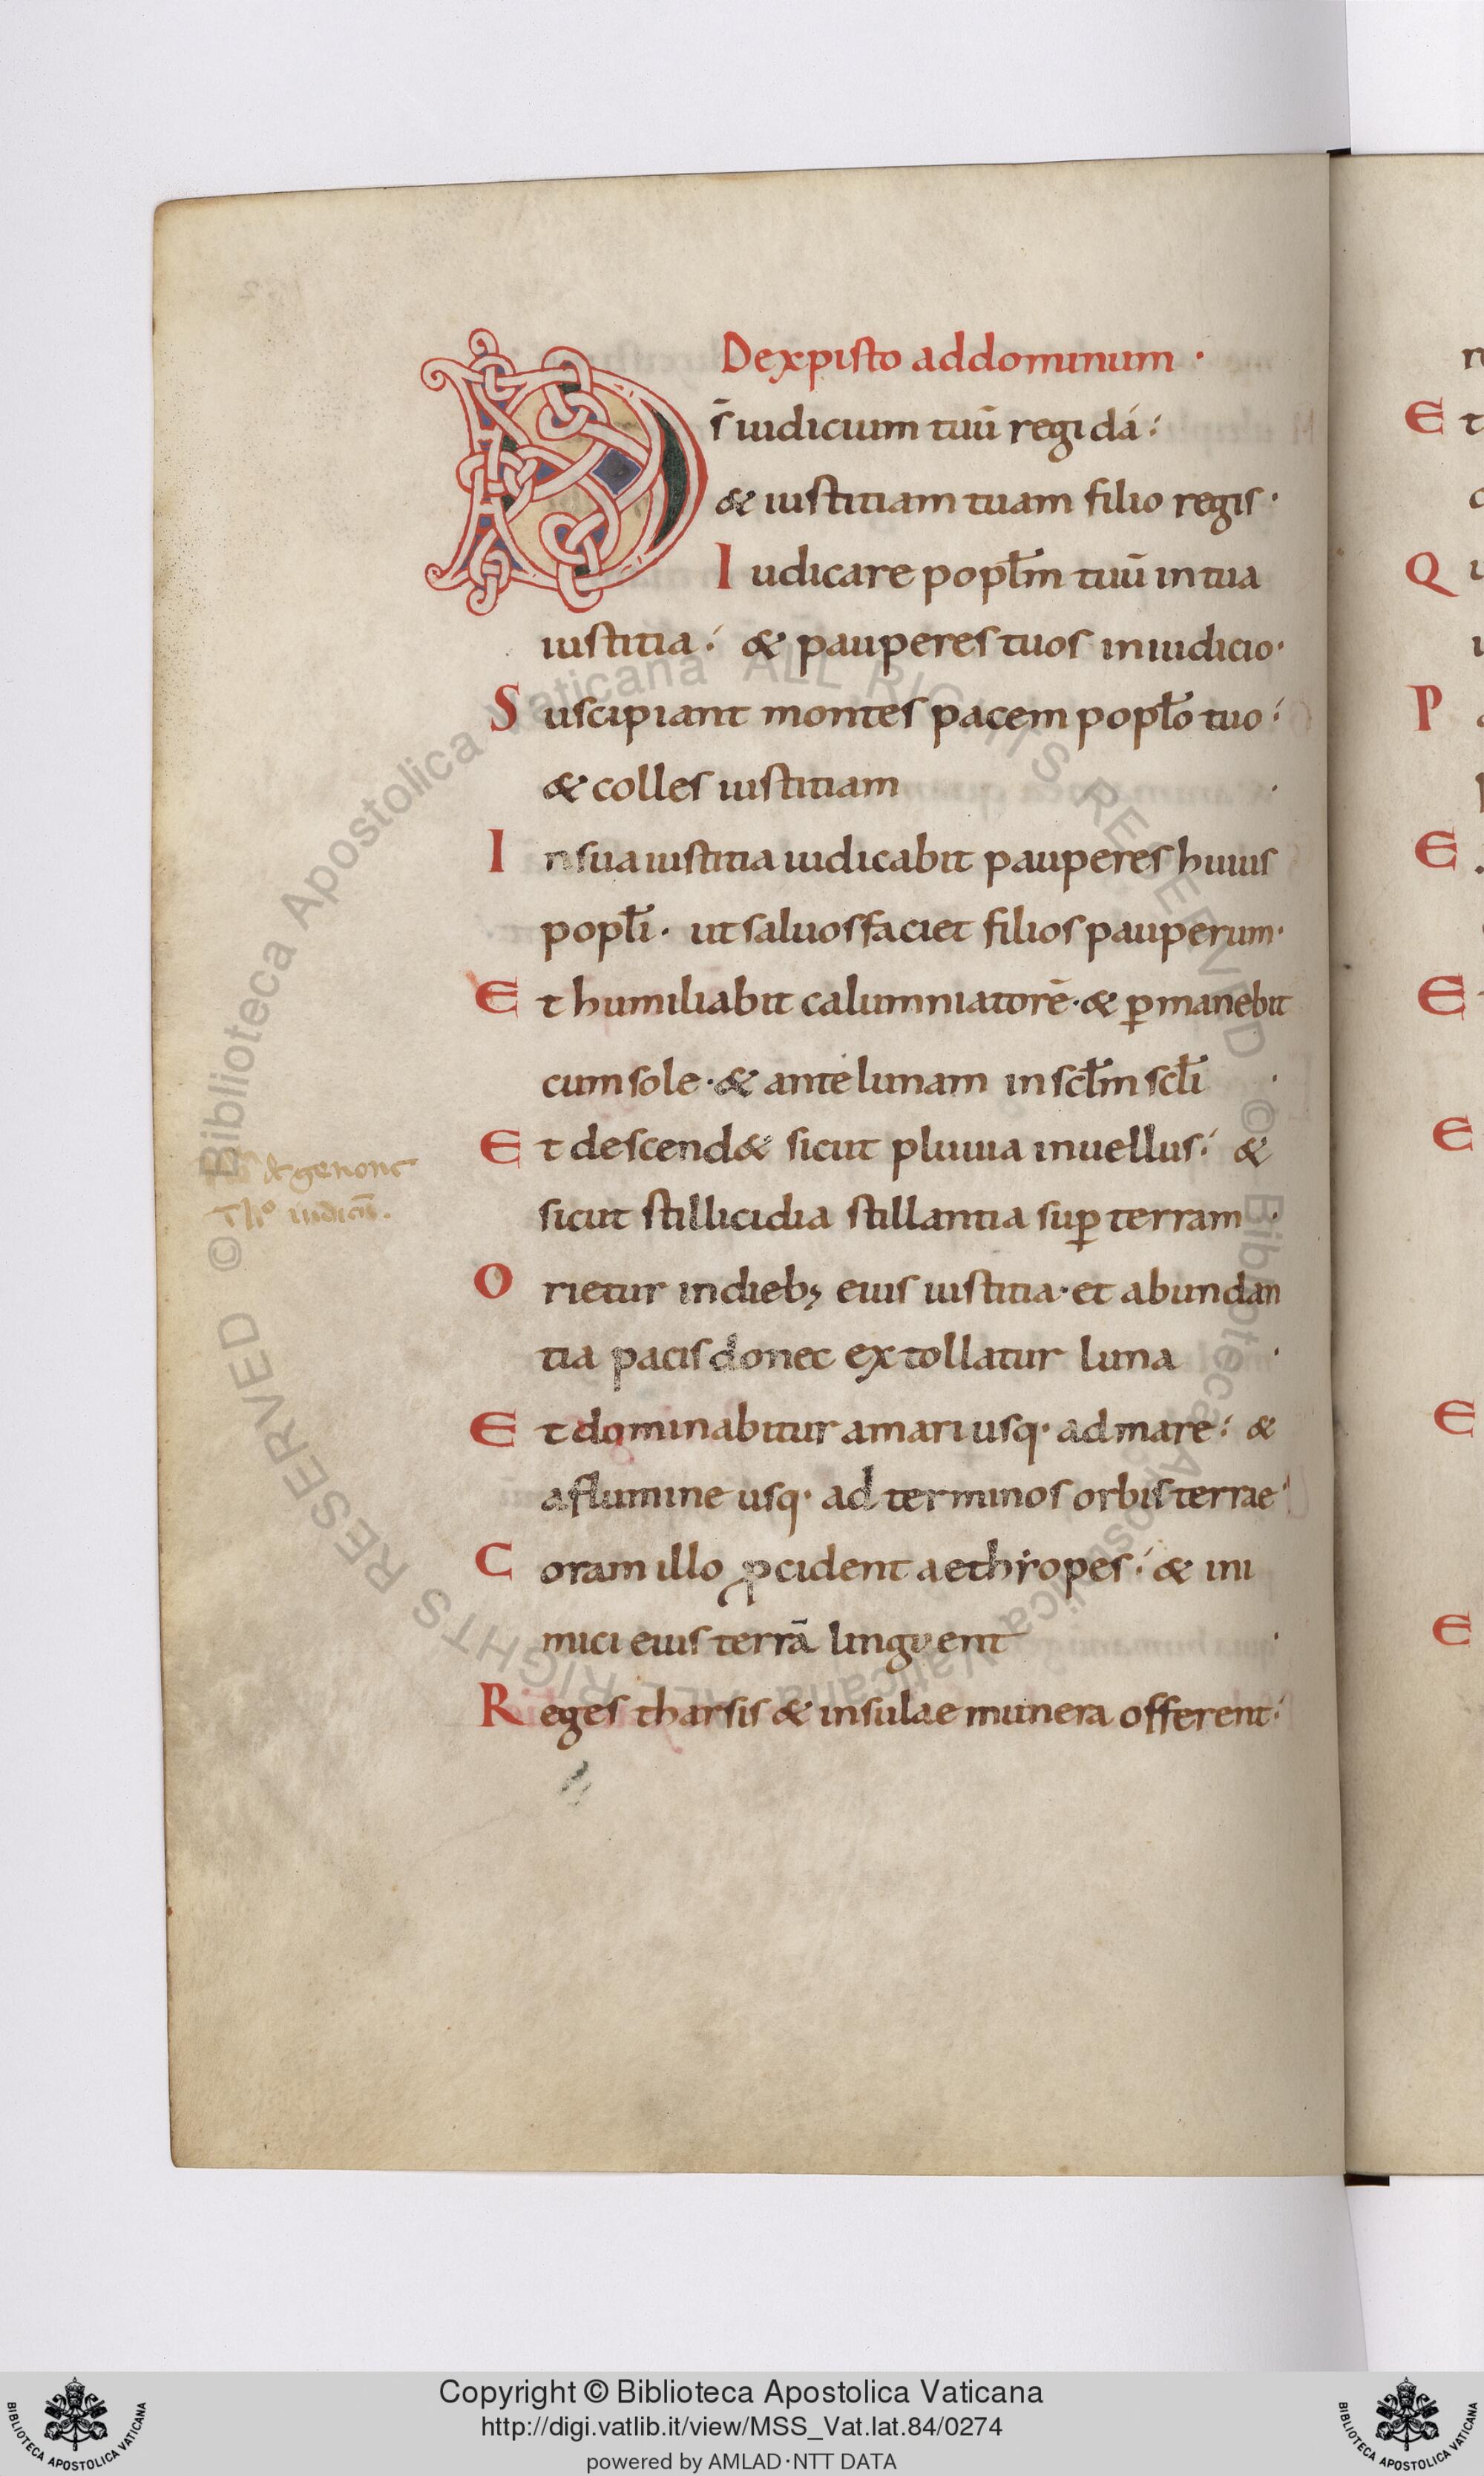 Dexpisto addominum ·
DS̄ iudicium tuū regi dá :
& iustitiam tuam filio regis ·
Iudicare popl̄m tuū in tua
iustitia : & pauperes tuos in iudicio ·
Suscipiant montes pacem popl̄o tuo :
& colles iustitiam ·
In sua iustitia iudicabit pauperes huius
popl̄i · ut saluos faciet filios pauperum ·
Et humiliabit calumniatorē · & ꝑmanebit
cum sole · & ante lunam in scl̄m scl̄i ·
Et descend& sicut pluuia in uellus : &
sicut stillicidia stillantia suꝑ terram ·
Orietur in dieb; eius iustitia · et abundan
tia pacis donec extollatur luna ·
Et dominabitur a mari usq· ad mare : &
a flumine usq· ad terminos orbis terrae ·
Coram illo ꝓcident aethiopes : & ini
mici eius terrā lingvent ·
Reges tharsis & insulae munera offerent :
iudiciū.
E t
Q
P
E
E
E
E
E
Copyright © Biblioteca Apostolica Vaticana
http://digi.vatlib.it/view/MSS_Vat.lat.84/0274
powered by AMLAD·NTT DATA
BIBLIOTECA APOSTOLICA VATICANA
BIBLIOTECA APOSTOLICA VATICANA
© Biblioteca Apostolica Vaticana ALL RIGHTS RESERVED © Biblioteca Apostolica Vaticana ALL RIGHTS RESERVED